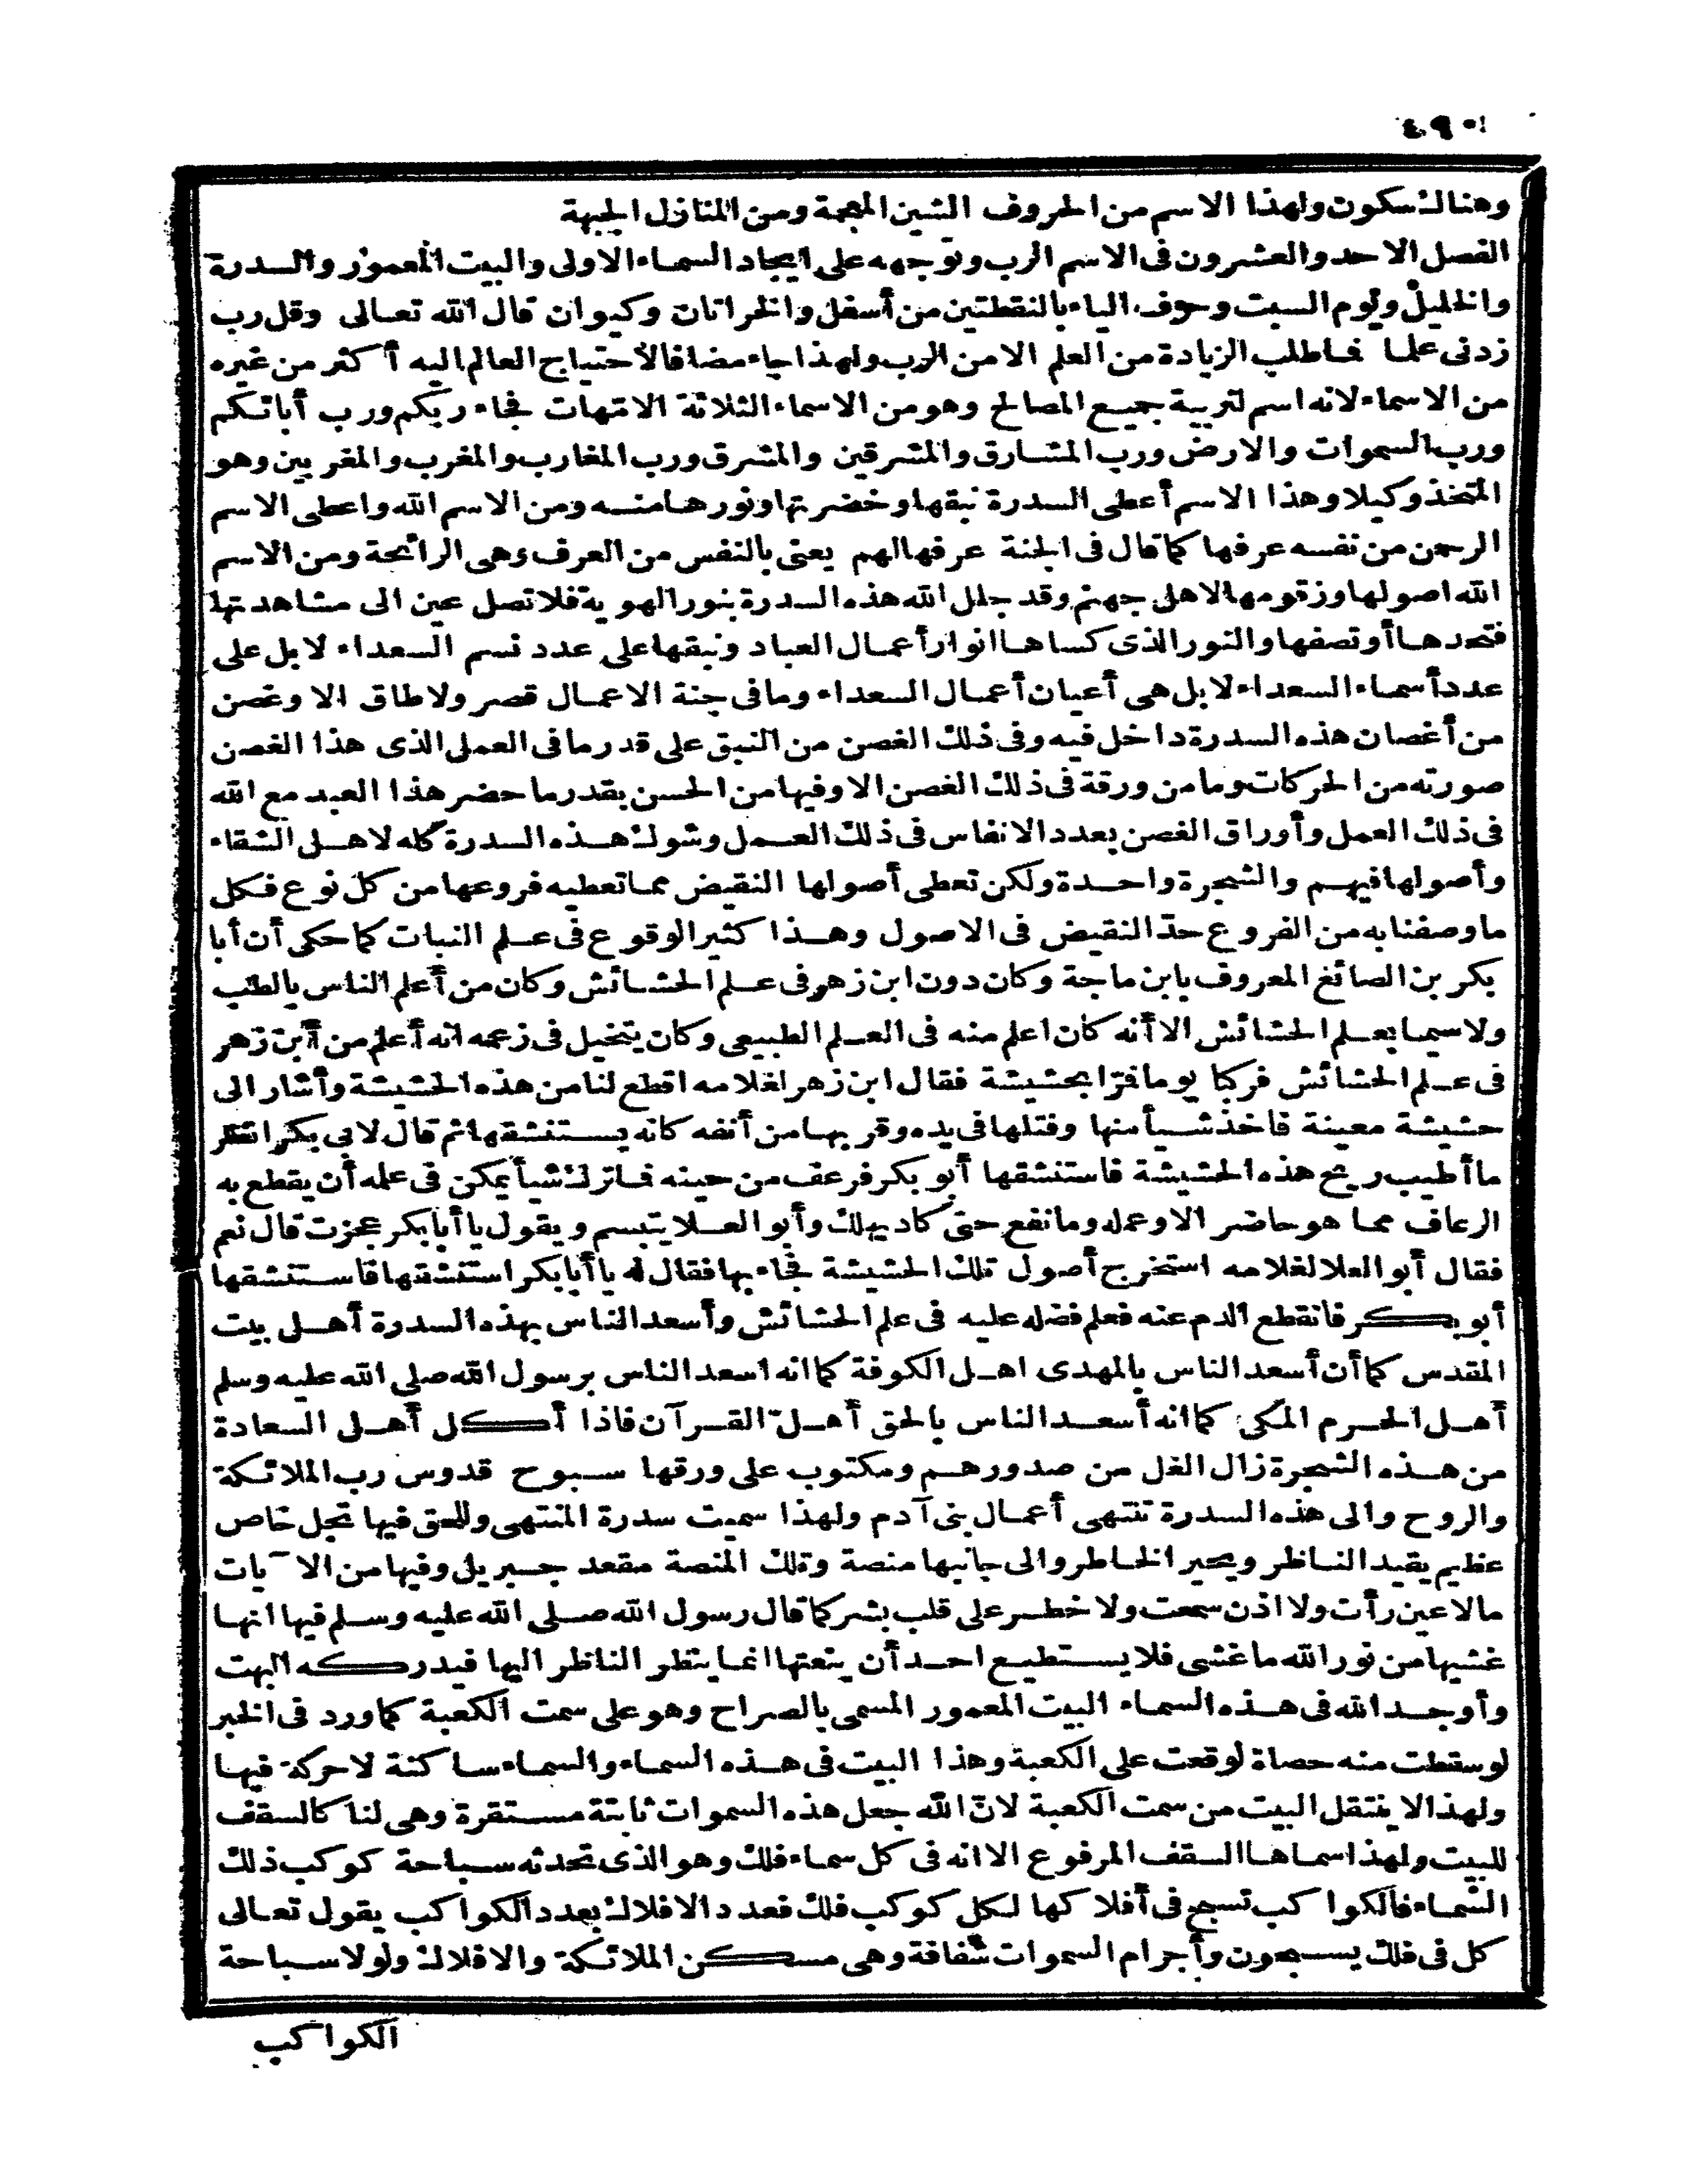 ٤٩٠
وهنالك سكون ولهذا الاسم من الحروف الشين المعجمة ومن المنازل الجبهة
الفصل الاحد والعشرون فى الاسم الرب وتوجهه على ايجاد السماء الاولى والبيت المعمور والسدرة
والخليل ويوم السبت وحرف الياء بالنقطتين من أسفل والخراتان وكيوان قال الله تعالى وقل رب
زدنى علما فماطلب الزيادة من العلم الا من الرب ولهذا جاء مضافا لاحتياج العالم اليه أكثر من غيره
من الاسماء لانه اسم لتربية جميع المصالح وهو من الاسماء الثلاثة الامهات فجاء ربكم ورب أبائكم
ورب السموات والارض ورب المشارق والمشرقين والمشرق ورب المغارب والمغرب والمغربين وهو
المتخذ وكيلا وهذا الاسم أعطى السدرة نبقها وخضرتها ونورها منه ومن الاسم الله واعطى الاسم
الرحمن من نفسه عرفها كما قال فى الجنة عرفها لهم يعنى بالنفس من العرف وهى الرائحة ومن الاسم
الله اصولها وزقومها لاهل جهنم وقد جلل الله هذه السدرة بنور الهوية فلا تصل عين الى مشاهدتها
فتحدها أو تصفها والنور الذى كساها انوار أعمال العباد ونبقها على عدد نسم السعداء لا بل على
عدد أسماء السعداء لا بل هى أعيان أعمال السعداء وما فى جنة الاعمال قصر ولا طاق الا وغصن
من أغصان هذه السدرة داخل فيه وفى ذلك الغصن من النبق على قدر ما فى العمل الذى هذا الغصن
صورته من الحركات وما من ورقة فى ذلك الغصن الا وفيها من الحسن بقدر ما حضر هذا العبد مع الله
فى ذلك العمل وأوراق الغصن بعدد الانفاس فى ذلك العمل وشوك هذه السدرة كله لاهل الشقاء
وأصولها فيهم والشجرة واحدة ولكن تعطى أصولها النقيض مما تعطيه فروعها من كل نوع فكل
ما وصفنا به من الفروع حدّ النقيض فى الاصول وهذا كثير الوقوع فى علم النبات كما حكى أن أبا
بكر بن الصائغ المعروف بابن ماجة وكان دون ابن زهر فى علم الحشائش وكان من أعلم الناس بالطب
ولا سيما بعلم الحشائش الا أنه كان اعلم منه فى العلم الطبيعى وكان يتخيل فى زعمه انه أعلم من أبن زهر
فى علم الحشائش فركبا يوما فمرّا بحشيشة فقال ابن زهر لغلامه اقطع لنا من هذه الحشيشة وأشار الى
حشيشة معينة فاخذ شيأ منها وفتلها فى يده وقربها من أنفه كانه يستنشقها ثم قال لابى بكر انظر
ما أطيب ريح هذه الحشيشة فاستنشقها أبو بكر فرعف من حينه فماترك شيأ يمكن فى علمه أن يقطع به
الرعاف مما هو حاضر الا وعمله وما نفع حتى كاد يهلك وأبو العلا يتبسم ويقول يا أبا بكر عجزت قال نعم
فقال أبو العلا لغلامه استخرج أصول تلك الحشيشة فجاء بها فقال له يا أبا بكر استنشقها فاستنشقها
أبو بكر فانقطع الدم عنه فعلم فضله عليه فى علم الحشائش وأسعد الناس بهذه السدرة أهل بيت
المقدس كما أن أسعد الناس بالمهدى اهل الكوفة كما انه اسعد الناس برسول الله صلى الله عليه وسلم
أهل الحرم المكى كما انه أسعد الناس بالحق أهل القرآن فاذا أكل أهل السعادة
من هذه الشجرة زال الغل من صدورهم ومكتوب على ورقها سبوح قدوس رب الملائكة
والروح والى هذه السدرة تنتهى أعمال بنى آدم ولهذا سميت سدرة المنتهى وللحق فيها تجل خاص
عظيم يقيد الناظر ويحير الخاطر والى جانبها منصة وتلك المنصة مقعد جبريل وفيها من الآيات
مالا عين رأت ولا اذن سمعت ولا خطر على قلب بشر كما قال رسول الله صلى الله عليه وسلم فيها انها
غشيها من نور الله ما غشى فلا يستطيع احد أن ينعتها انما ينظر الناظر اليها فيدركه البهت
وأوجد الله فى هذه السماء البيت المعمور المسمى بالصراح وهو على سمت الكعبة كما ورد فى الخبر
لو سقطت منه حصاة لوقعت على الكعبة وهذا البيت فى هذه السماء والسماء ساكنة لا حركة فيها
ولهذا لا ينتقل البيت من سمت الكعبة لانّ الله جعل هذه السموات ثابتة مستقرة وهى لنا كالسقف
للبيت ولهذا اسماها السقف المرفوع الا انه فى كل سماء فلك وهو الذى تحدثه سباحة كوكب ذلك
السماء فالكواكب تسبح فى أفلاكها لكل كوكب فلك فعدد الافلاك بعدد الكواكب يقول تعالى
كل فى فلك يسبحون وأجرام السموات شفافة وهى مسكن الملائكة والافلاك ولولا سباحة
الكواكب